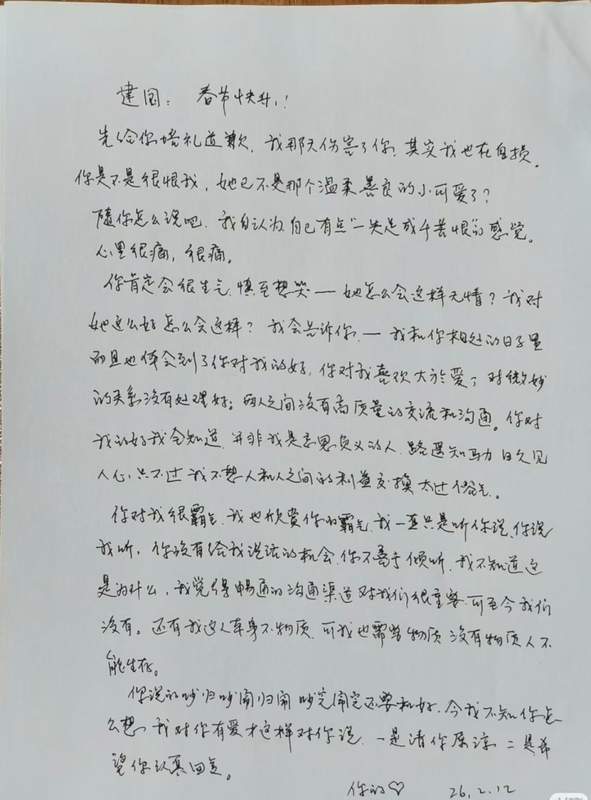 建国：春节快升！
先给你赔礼道歉，我那天伤害了你，其实我也在自损，
你是不是很恨我，她已不是那个温柔善良的小可爱了？
随你怎么说吧，我自认为自己有点“一失足成千苦恨”的感觉。
心里很痛，很痛。
你肯定会很生气，慎至想哭—她怎么会这样无情？我对
她这么好怎么会这样？我会告诉你，—我和你相处的日子里
而且也体会到了你对我的好，你对我喜欢大于爱，对微妙
的关系没有处理好。两人之间没有高质量的交流和沟通。你对
我的好我会知道，并非我是忘恩负义的人，路遥知马力日久见
人心，只不过我不想人和人之间的利益交换太过俗气。
你对我很霸气，我也欣赏你的霸气，我一直只是听你说，你说
我听，你没有给我说话的机会，你不善于倾听，我不知道这
是为什么，我觉得畅通的沟通渠道对我们很重要，可至今我们
没有。还有我这人本身不物质，可我也需要物质，没有物质人不
能生存。
你说的吵归吵闹归闹吵完闹完还要和好，今我不知你怎
么想，我对你有爱才这样对你说，一是请你原谅，二是希
望你认真回复。
你的♡ 26.2.12